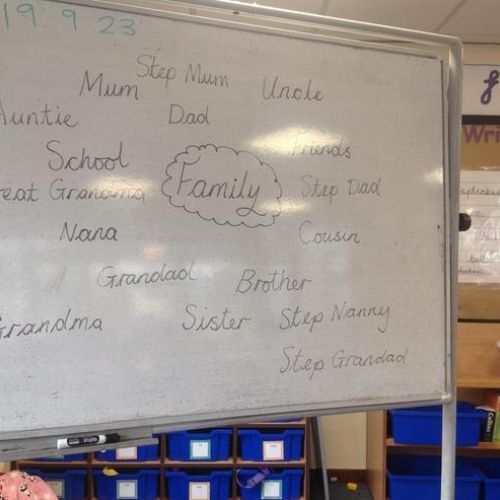 19.9.23
Step Mum
Mum
Uncle
Auntie
Dad
School
Friends
Great Grandma
Family
Step Dad
Nana
Cousin
Grandad
Brother
Grandma
Sister
Step Nanny
Step Grandad